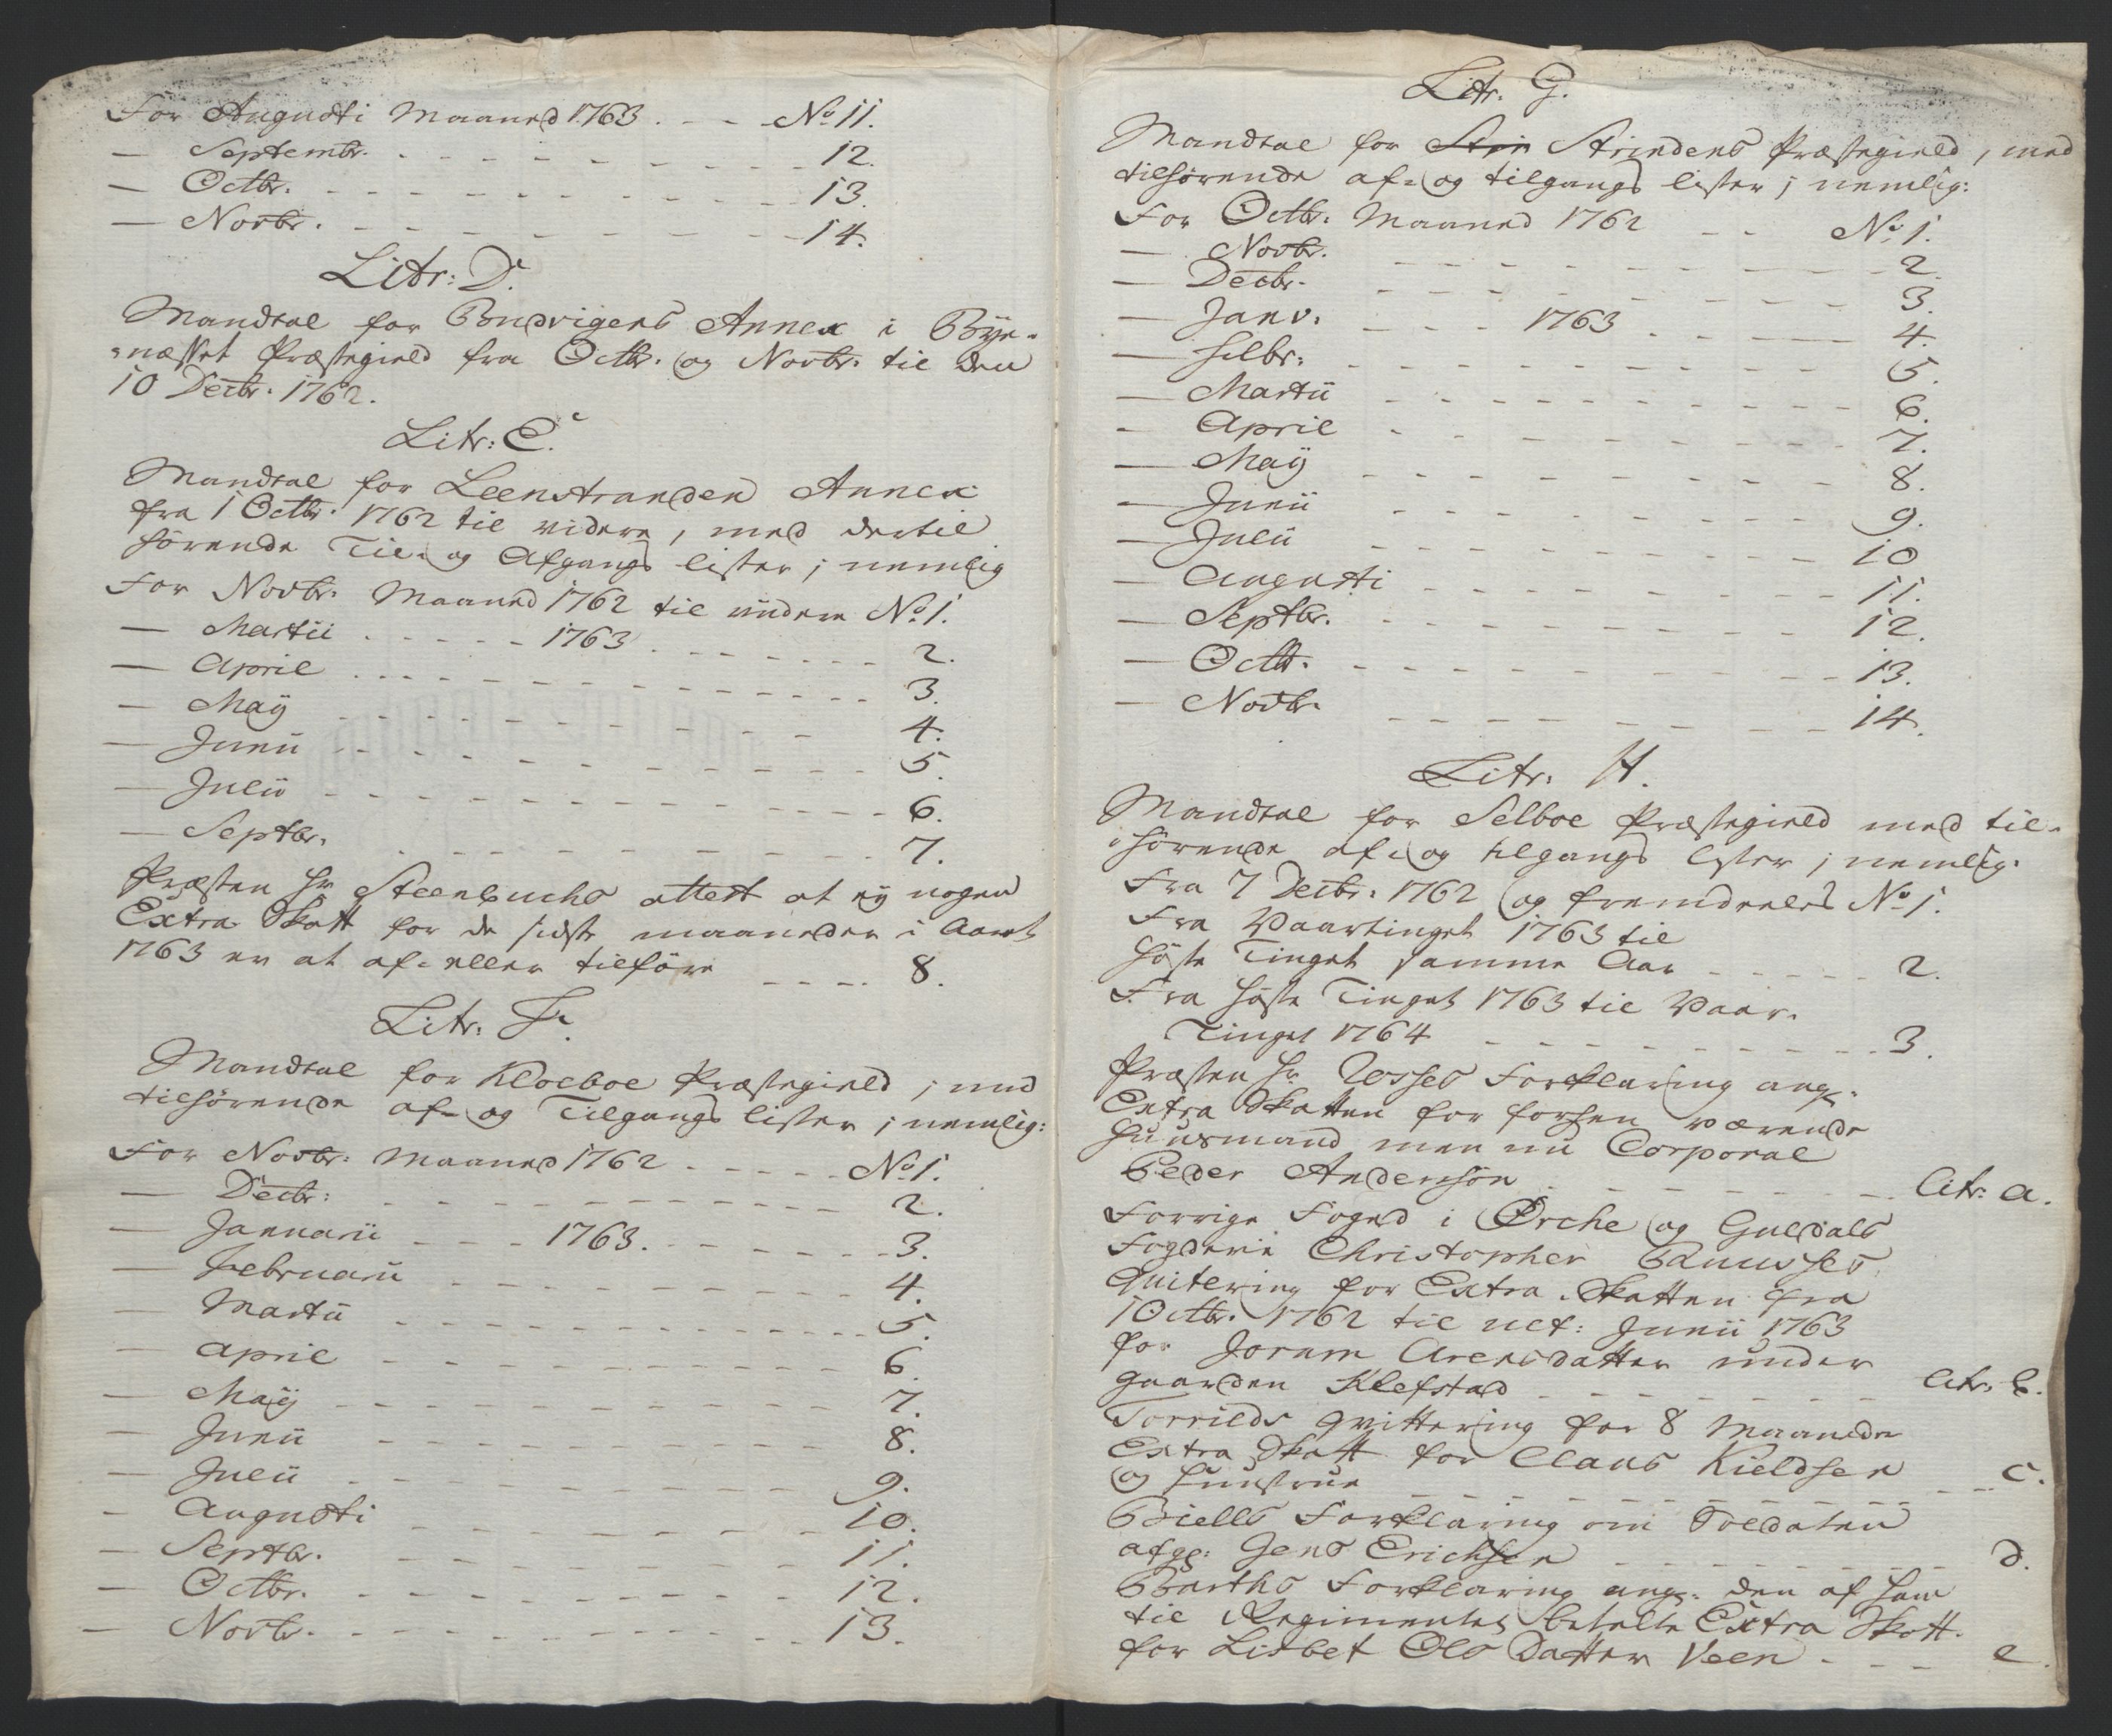 For Augusti Maaned 1763. - - No 11.
— Septembr. - - - - - - - - 12.
— Octbr. - - - - - - - - - 13.
— Novbr. - - - - - - - - - 14.
Litr: D.
Mandtal for Budvigens Annex i Bÿe-
næsset Præstegield fra Octbr. og Novbr. til den
10 Decbr. 1762.
Litr: E.
Mandtal for Leenstranden Annex
fra 1 Octbr. 1762 til videre, med dertil
hörende Til- og Afgangs lister; nemlig
For Novbr. Maaned 1762 til videre No 1.
— Martii - - - - 1763 - - - - - 2.
— April - - - - - - - - - - 3.
— Maÿ - - - - - - - - - - 4.
— Junii - - - - - - - - - - 5.
— Julii - - - - - - - - - - 6.
— Septbr. - - - - - - - - - 7.
Præsten Hr Steenbuchs attest at eÿ nogen
Extra Skatt for de sidste maaneder i Aaret
1763 er at af- eller tilföre - - - - 8.
Litr: F.
Mandtal for Kloeboe Præstegield, med
tilhörende af- og Tilgangs lister; nemlig:
For Novbr: Maaned 1762 - - - - - No 1.
— Decbr: - - - - - - - - - - 2.
— Januarii - - - 1763. - - - - - 3.
— Februarii - - - - - - - - - 4.
— Martii - - - - - - - - - - 5.
— April - - - - - - - - - - 6.
— Maÿ - - - - - - - - - - 7.
— Junii - - - - - - - - - - 8.
— Julii - - - - - - - - - - 9.
— Augusti - - - - - - - - - 10.
— Septbr. - - - - - - - - - 11.
— Octbr. - - - - - - - - - 12.
— Novbr. - - - - - - - - - 13.
Litr. G.
Mandtal for Strin Strindens Præstegield, med
tilhörende af- og tilgangs lister; nemlig:
For Octbr. Maaned 1762 - - No 1.
— Novbr. - - - - - - - - - 2.
— Decbr. - - - - - - - - - 3.
— Janv. - - - 1763 - - - - - 4.
— Febr: - - - - - - - - - - 5.
— Martii - - - - - - - - - 6.
- April - - - - - - - - - 7.
— Maÿ - - - - - - - - - 8.
— Junii - - - - - - - - - 9.
— Julii - - - - - - - - - 10
— Augusti - - - - - - - - 11.
— Septbr. - - - - - - - - 12.
— Octbr. - - - - - - - - - 13.
— Novbr. - - - - - - - - 14.
Litr: H.
Mandtal for Selboe Præstegield med til-
hörende af- og tilgangs lister; nemlig.
Fra 7 Decbr: 1762 og fremdeeles No 1.
Fra Vaartinget 1763 til
Höste Tinget samme Aar - - - - - 2.
Fra Höste Tinget 1763 til Vaar-
Tinget 1764 - - - - - - - - 3.
Præsten Hr Forklaring ang:
Extra Skatten for forhen værende
Huusmand men nu Corporal
Peder Andersön - - - - - - - Litr: a.
Forrige Foged i Örche og Guldals
Fogderie Christopher Rmusses
Quitering for Extra Skatten fra
1 Octbr. 1762 til ult: Junii 1763
for Jorum Arensdatter under
Gaarden Klefstad - - - - - - Litr: b.
Torrilds qvittering for 8 Maaneder
Extra Skatt for Claus Kieldsen
og Huustrue - - - - - - - - - c.
Biells Forklaring om Soldaten
afg: Jens Erichsen - - - - - - - d.
Barths Forklaring ang: den af ham
til Regimentet betalte Extra Skatt
for Lisbet Ols Datter Veen - - - - e.